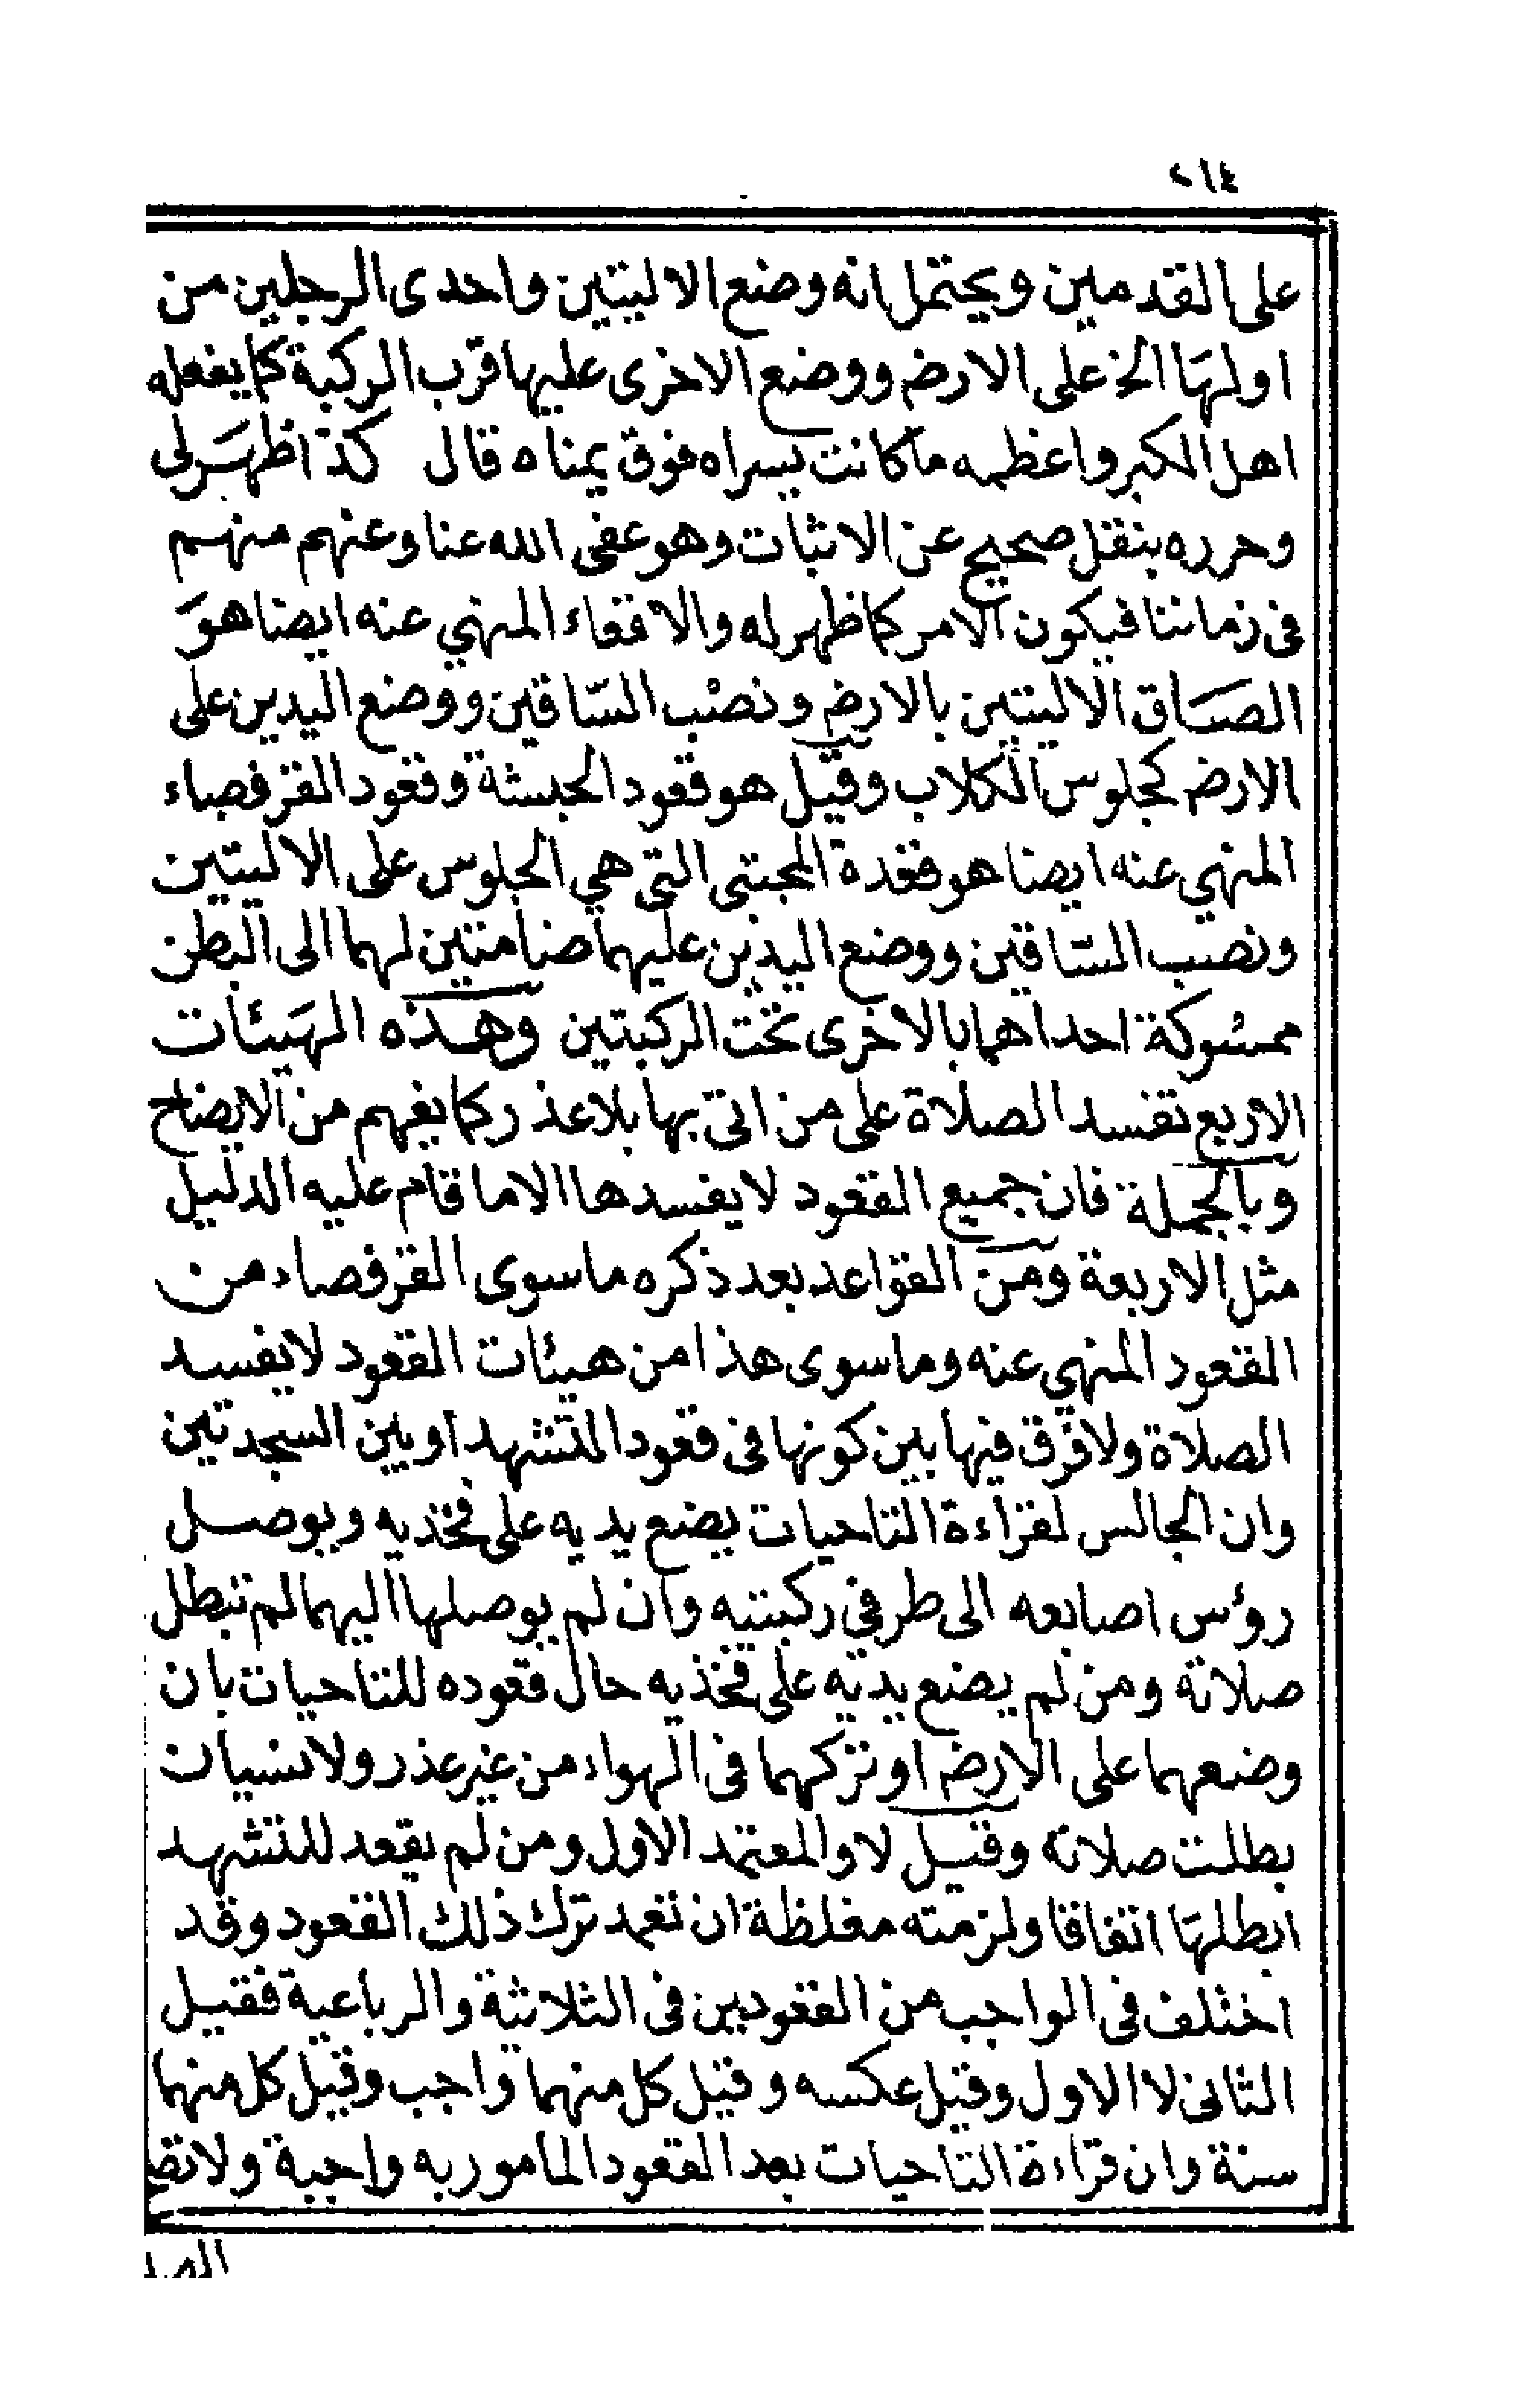 ٢١٤
على القدمين ويحتمل انه وضع الاليتين واحدى الرجلين من
اولهَا الخ على الارض ووضع الاخرى عليها قرب الركبة كما يفعله
اهل الكبر واعظمه ما كانت يسراه فوق يمناه قال كذا ظهَر لى
وحرره بنقل صحيح عن الاثبات وهو عفى الله عنا وعنهم منهم
فى زماننا فيكون الامر كما ظهر له والاقعاء المنهي عنه ايضا هوَ
الصَاق الاليتين بالارض ونصْب السّاقين ووضع اليدين على
الارض كجلوس الكلاب وقيل هو قعود الحبشة وقعود القرفصاء
المنهي عنه ايضا هو قعدة المحبتى التى هي الجلوس على الاليتين
ونصب السّاقين ووضع اليدين عليهما ضامتين لهما الى البطن
ممسُوكة احداهما بالاخرى تحت الركبتين وهذه الهَيئات
الاربع تفسد الصلاة على من اتى بها بلا عذر كما يفهم من الايضاح
وبالجملة فان جميع القعود لا يفسدها الا ما قام عليه الدليل
مثل الاربعة ومن القواعد بعد ذكره ما سوى القرفصاء من
القعود المنهي عنه وما سوى هذا من هيئات القعود لا يفسد
الصلاة ولا فرق فيها بين كونها فى قعود التشهد او بين السجدتين
وان الجالس لقراءة التاحيات يضع يديه على فخذيه ويوصل
رؤس اصابعه الى طرفي ركبتيه وان لم يوصلها اليهما لم تبطل
صلاته ومن لم يضع يديه على فخذيه حال قعوده للتاحيات بان
وضعهما على الارض او تركهما فى الهواء من غير عذر ولا نسيان
بطلت صلاته وقيل لا والمعتمد الاول ومن لم يقعد للتشهد
ابطلهَا اتفاقا ولزمته مغلظة ان تعمد ترك ذلك القعود وقد
اختلف فى الواجب من القعودين فى الثلاثية والرباعية فقيل
الثانى لا الاول وقيل عكسه وقيل كل منهما واجب وقيل كل منهما
سنة وان قراءة التاحيات بعد القعود المأمور به واجبة ولا تصح